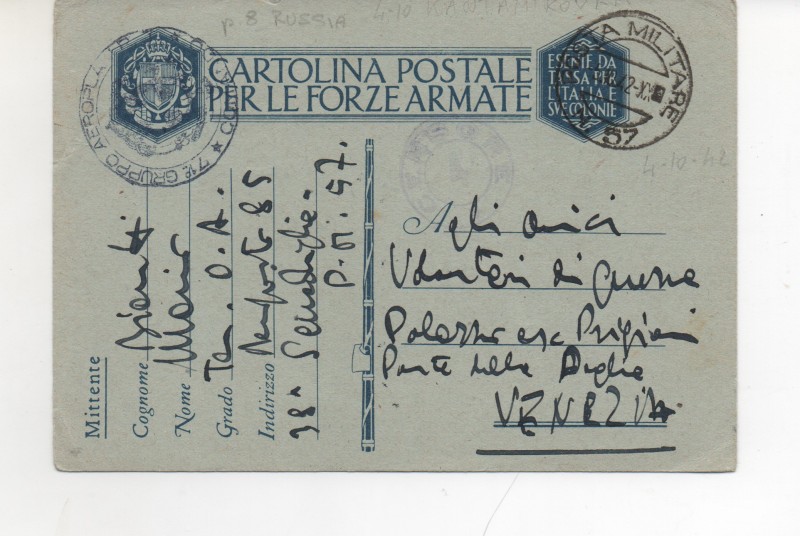 p. 8 RUSSIA
4-10
CARTOLINA POSTALE
PER LE FORZE ARMATE
ESENTE DA
TASSA PER
L'ITALIA E
SVE COLONIE
71º GRUPPO AEROPLANI
POSTA MILITARE
57
4-10-42
Mittente
Cognome
Nome Mario
Grado Ten. O. A.
Indirizzo
38ª Squadriglia
P. M. 57.
Agli amici
Volontari di guerra
Palazzo ex Prigioni
Ponte della Paglia
VENEZIA